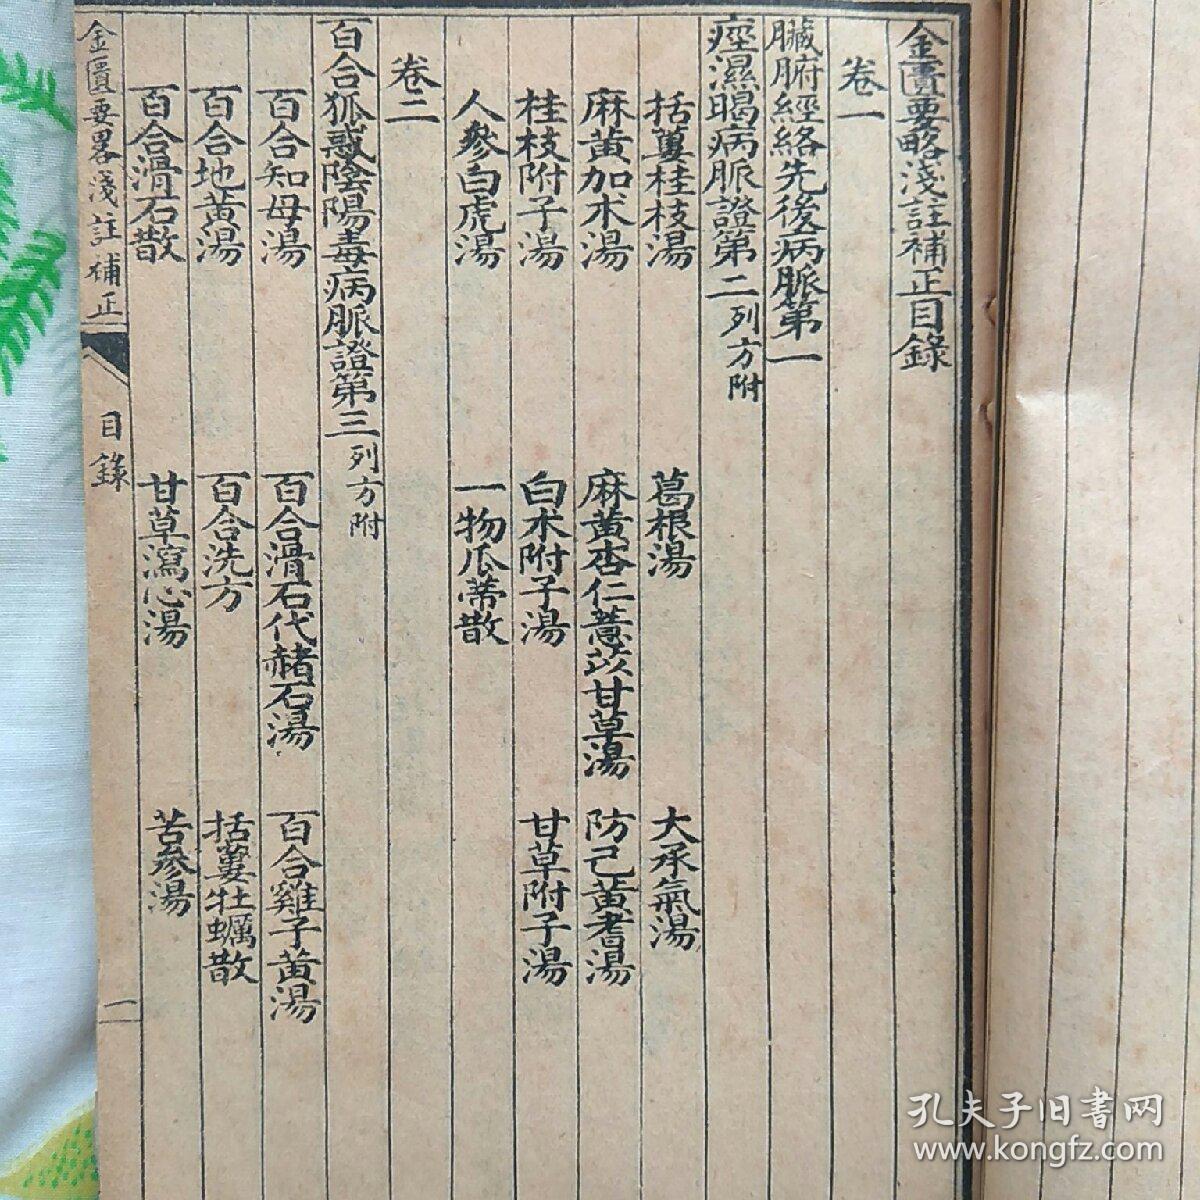 金匱要略淺註補正目錄
卷一
臟腑經絡先後病脈第一
痙濕暍病脈證第二 列方附
括蔞桂枝湯 葛根湯 大承氣湯
麻黃加朮湯 麻黃杏仁薏苡甘草湯 防己黃耆湯
桂枝附子湯 白朮附子湯 甘草附子湯
人參白虎湯 一物瓜蒂散
卷二
百合狐惑陰陽毒病脈證第三 列方附
百合知母湯 百合滑石代赭石湯 百合雞子黃湯
百合地黃湯 百合洗方 括蔞牡蠣散
百合滑石散 甘草瀉心湯 苦參湯
金匱要畧淺註補正 目錄 一
孔夫子旧書网
www.kongfz.com